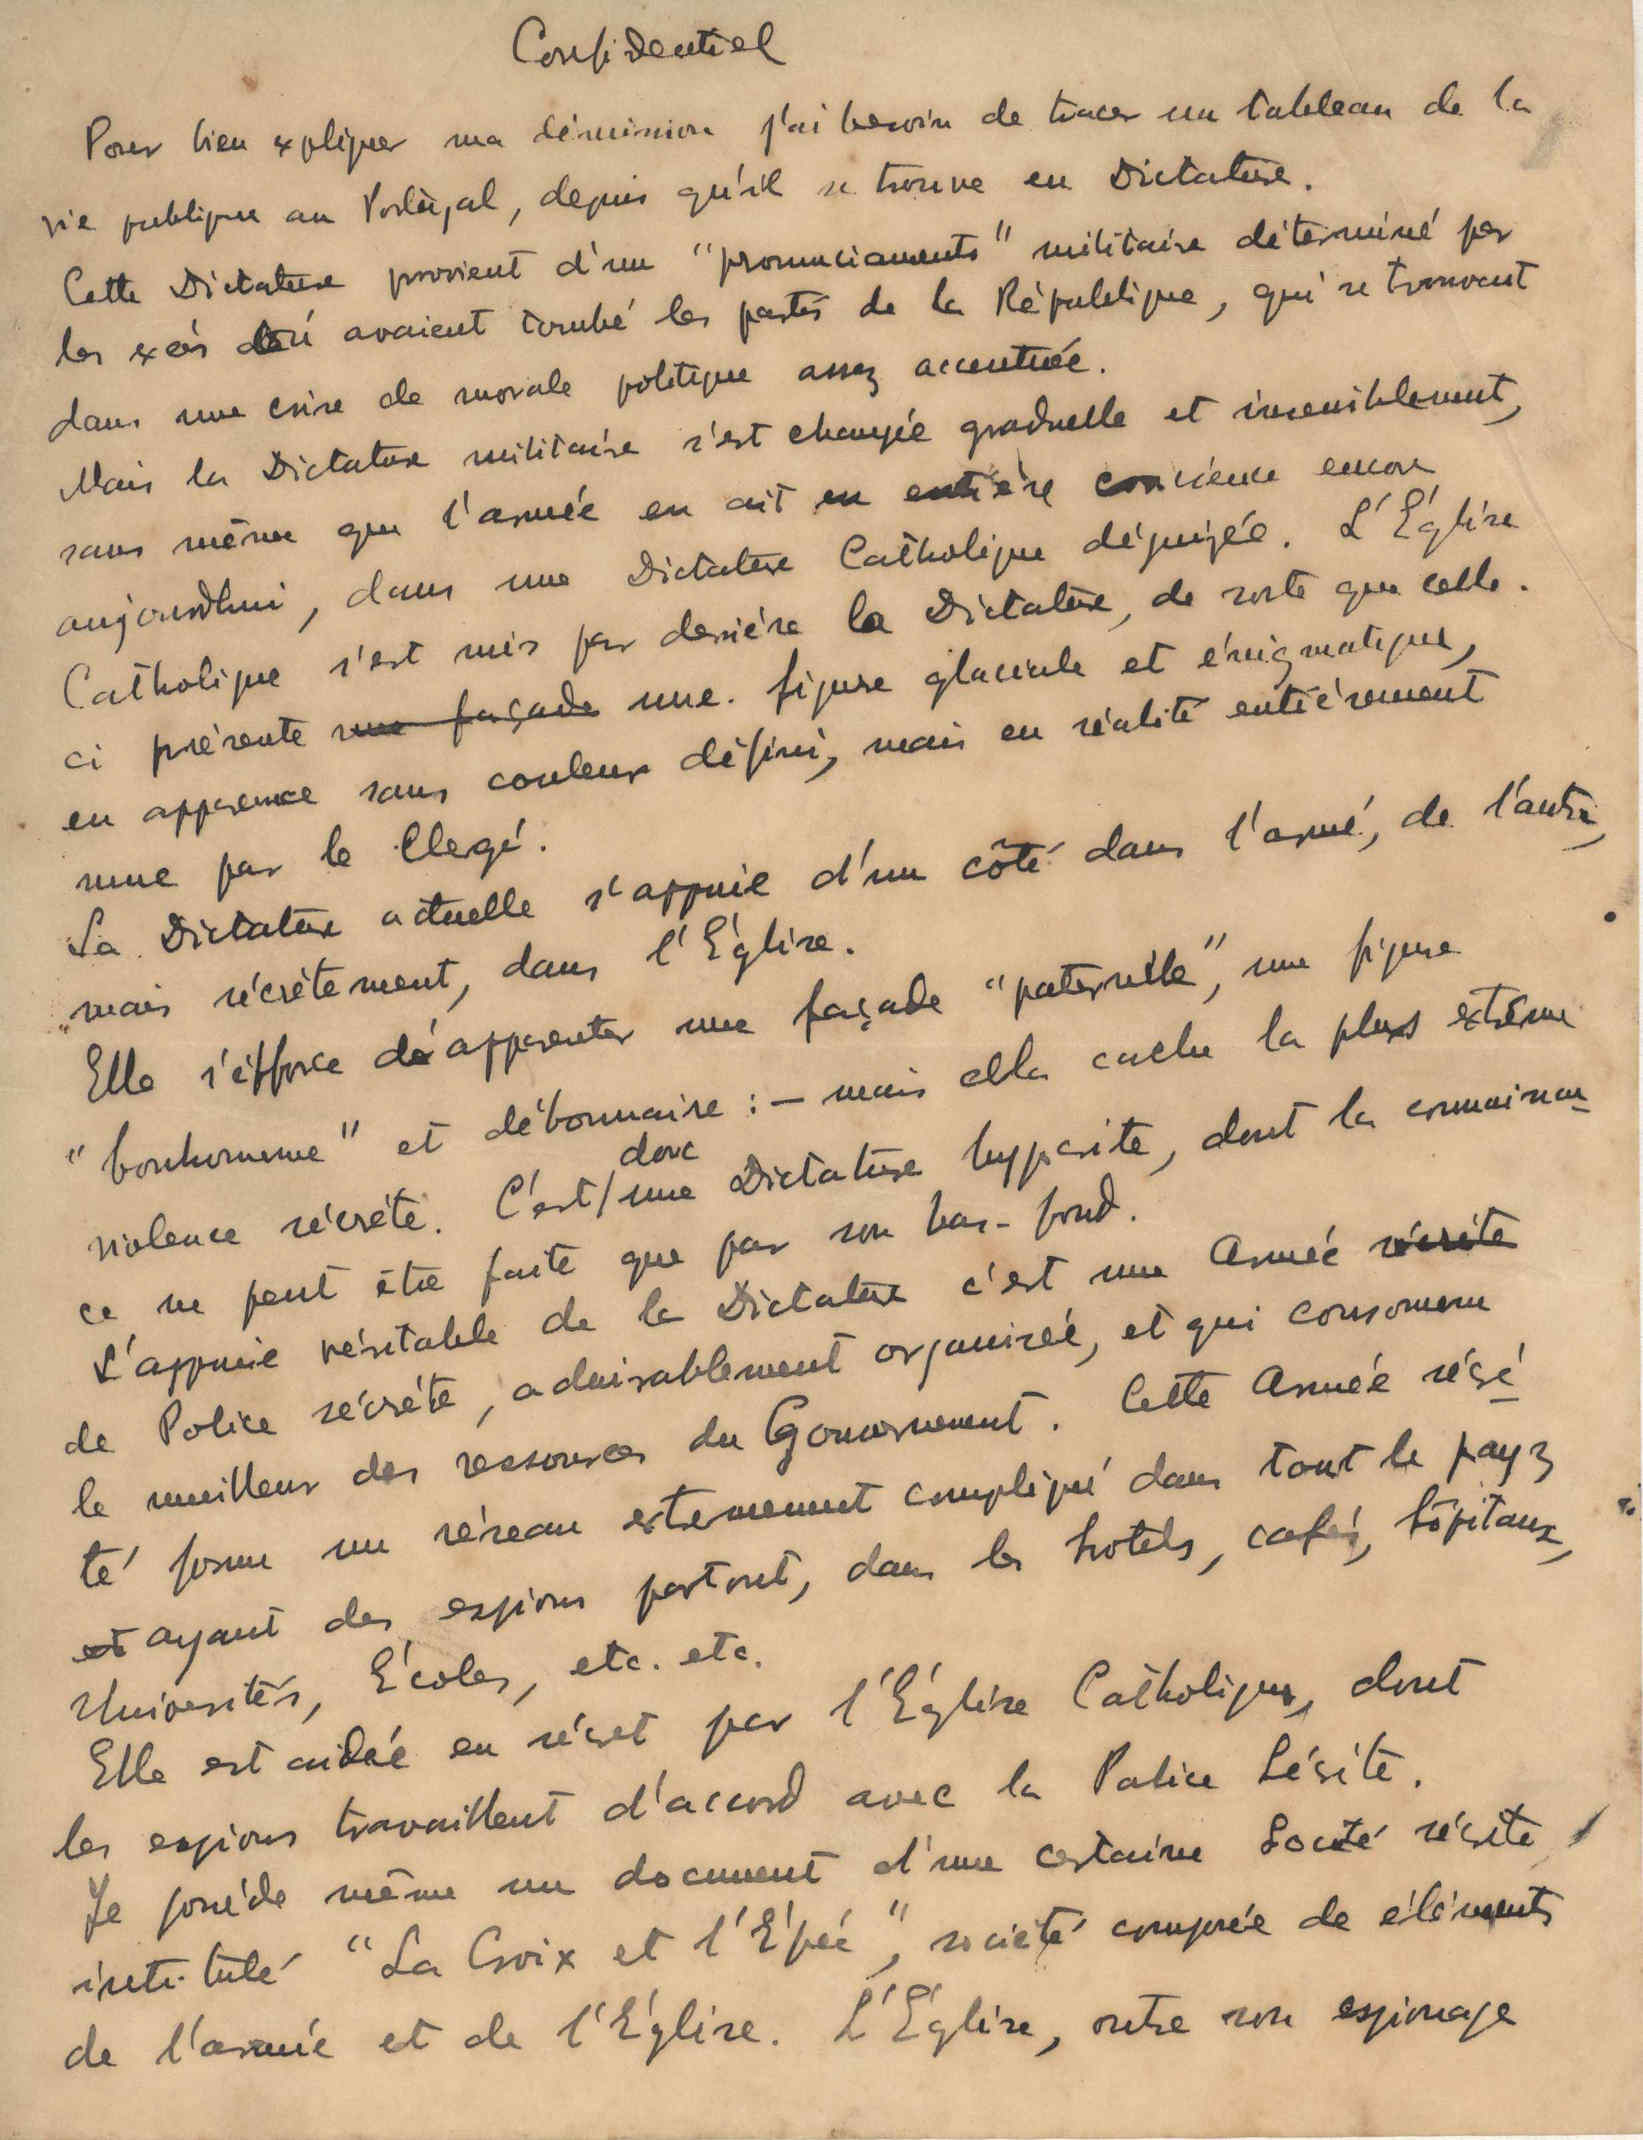 Confidentiel
Pour bien expliquer ma démission j'ai besoin de tracer un tableau de la
vie publique au Portugal, depuis qu'il se trouve en Dictature.
Cette Dictature provient d'un "pronunciamento" militaire déterminé par
les excès où avaient tombé les partis de la République, qui se trouvent
dans une crise de morale politique assez accentuée.
Mais la Dictature militaire s'est changée graduelle et insensiblement,
sans même que l'armée en ait eu entière conscience encore
aujourdhui, dans une Dictature Catholique déguisée. L'Église
Catholique s'est mis par derrière la Dictature, de sorte que celle-
ci présente une façade une figure glaciale et énigmatique,
en apparence sans couleur défini, mais en réalité entièrement
mue par le Clergé.
La Dictature actuelle s'appuie d'un côté dans l'armé, de l'autre,
mais sécrètement, dans l'Église.
Elle s'éfforce d'apparenter une façade "paternelle", une figure
"bonhomme" et débonnaire : — mais ella cache la plus extrême
violence sécréte. C'est/ donc une Dictature hyppcrite, dont la connaissan-
ce ne peut être faite que par son bas-fond.
L'appuie véritable de la Dictature c'est une Armée sécréte
de Police sécréte, admirablement organiseé, et qui consomme
le meilleur des ressources du Gouvernement. Cette Armée sécré
té forme un réseau extremement compliqué dans tout le payz
et ayant des espions partout, dans les hotels, cafés, hôpitaux,
Universités, Écoles, etc. etc.
Elle est aideé en sécret par l'Église Catholique, dont
les espions travaillent d'accord avec la Police Sécrite.
Je posséde même un document d'une certaine Société sécrite
intitulé "La Croix et l'Épeé", société composée de éléments
de l'armée et de l'Église. L'Église, outre son espionage